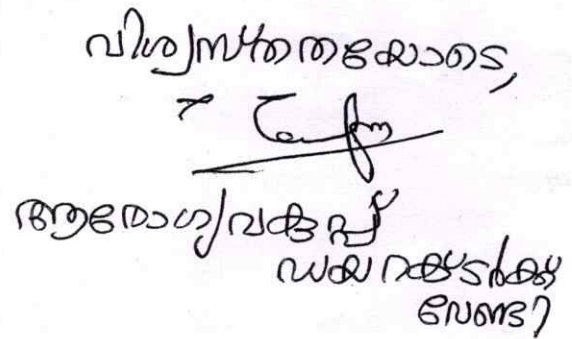 വിശ്വസ്തതയോടെ,
ആരോഗ്യവകുപ്പ്
ഡയറക്ടർക്ക്
വേണ്ടി